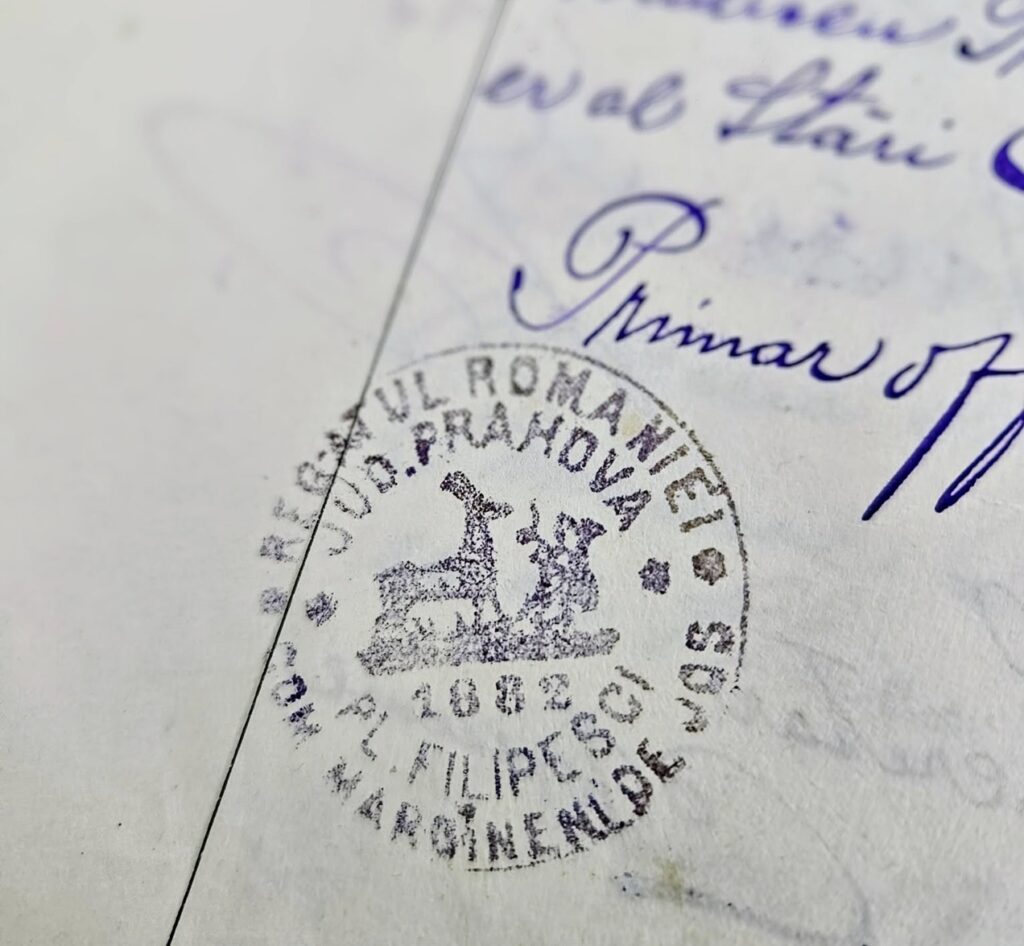 er al Stări
Primar of
REGATUL ROMANIEI
JUD. PRAHOVA
1882
PL. FILIPESCI
COM. MARGINENI DE JOS